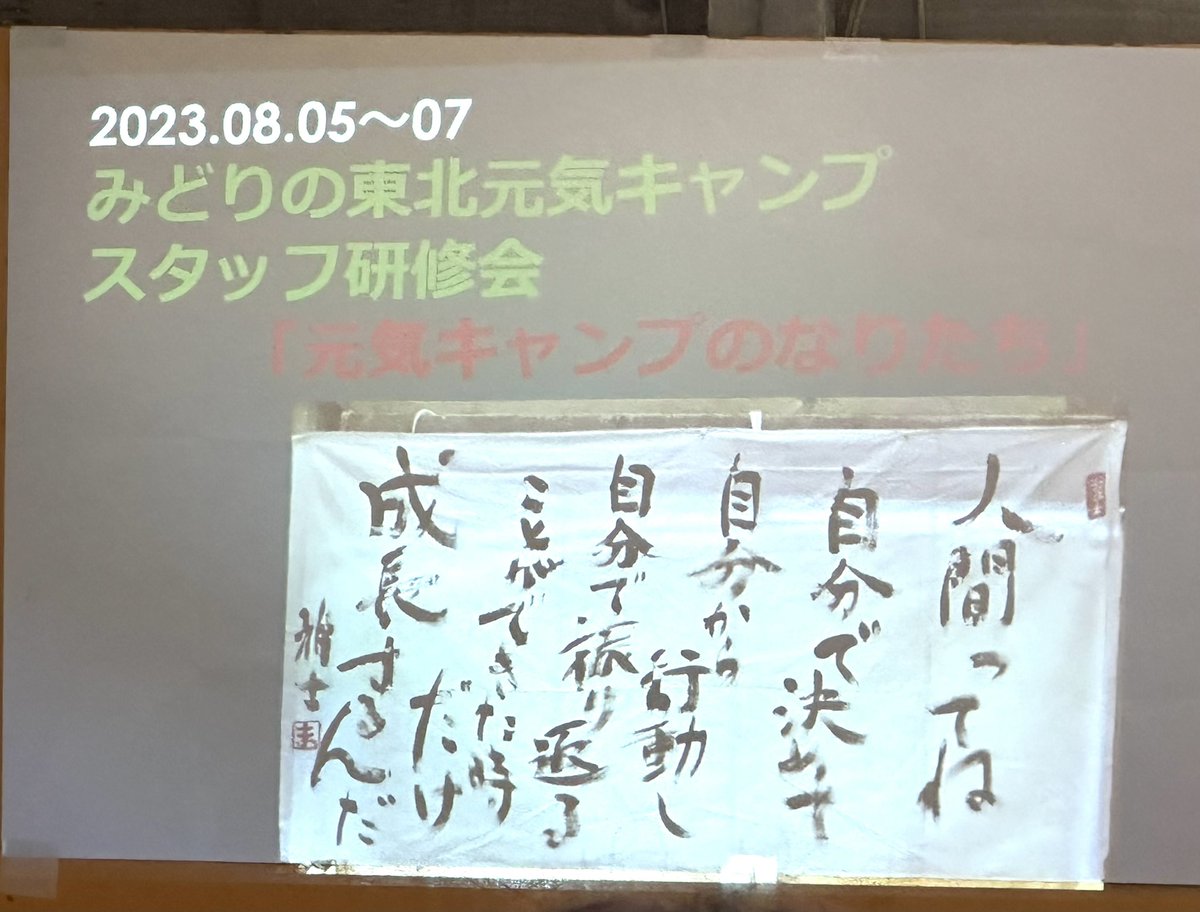 2023.08.05〜07
みどりの東北元気キャンプ
スタッフ研修会
「元気キャンプのなりたち」
人間ってね
自分で決
自分から行動し
自分で振り返る
ことができた時
だけ
成長するんだ